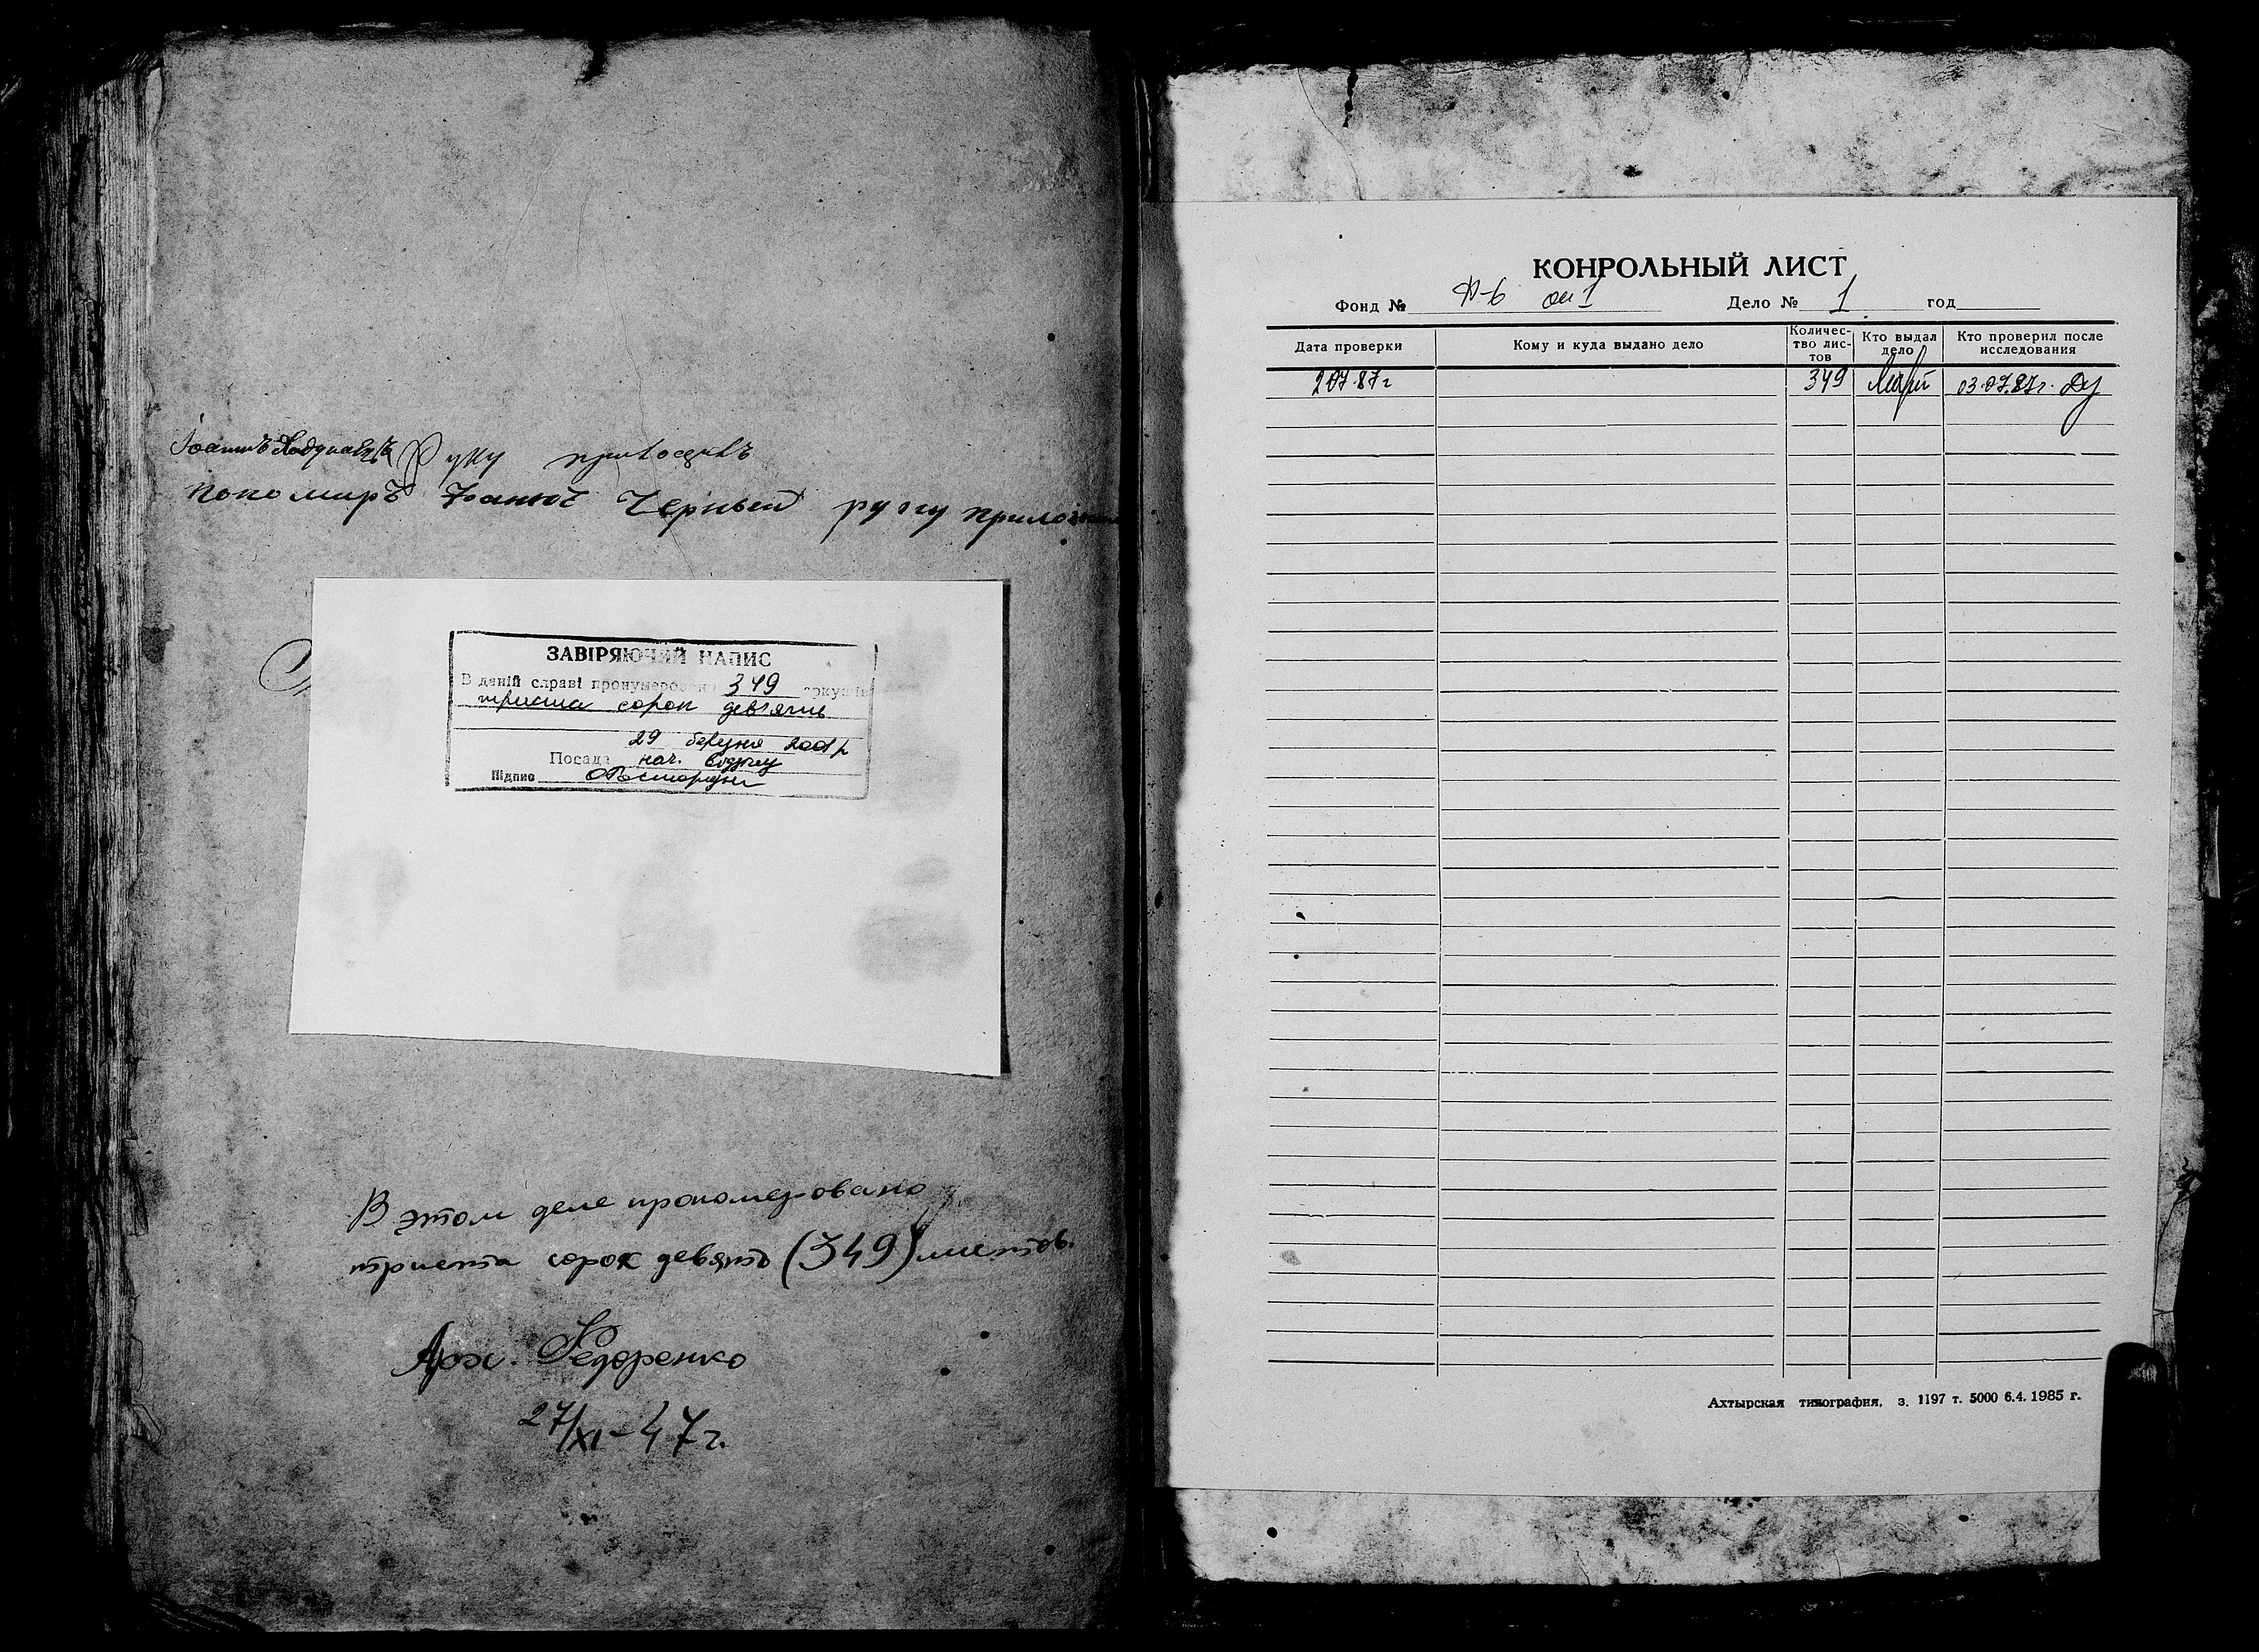 Іоаннъ Руку приложилъ
пономарь Іоаннъ Черный руку приложил
ЗАВІРЯЮЧИЙ НАПИС
В даній справі пронумеровано 349 аркушів
триста сорок дев'ять
29 березня 2001 р
Посада нач. відділу
Підпис
В этом деле прономеровано
триста сорок девять (349) листов.
Арх. Федоренко
27/XI-47г.
КОНРОЛЬНЫЙ ЛИСТ
Фонд № Ф-6 оп 1 Дело № 1 год
Дата проверки Кому и куда выдано дело Количес-тво лис-тов Кто выдал дело Кто проверил после исследования
2 07.87г 349 03.07.87г.
Ахтырская типография, з. 1197 т. 5000 6.4. 1985 г.